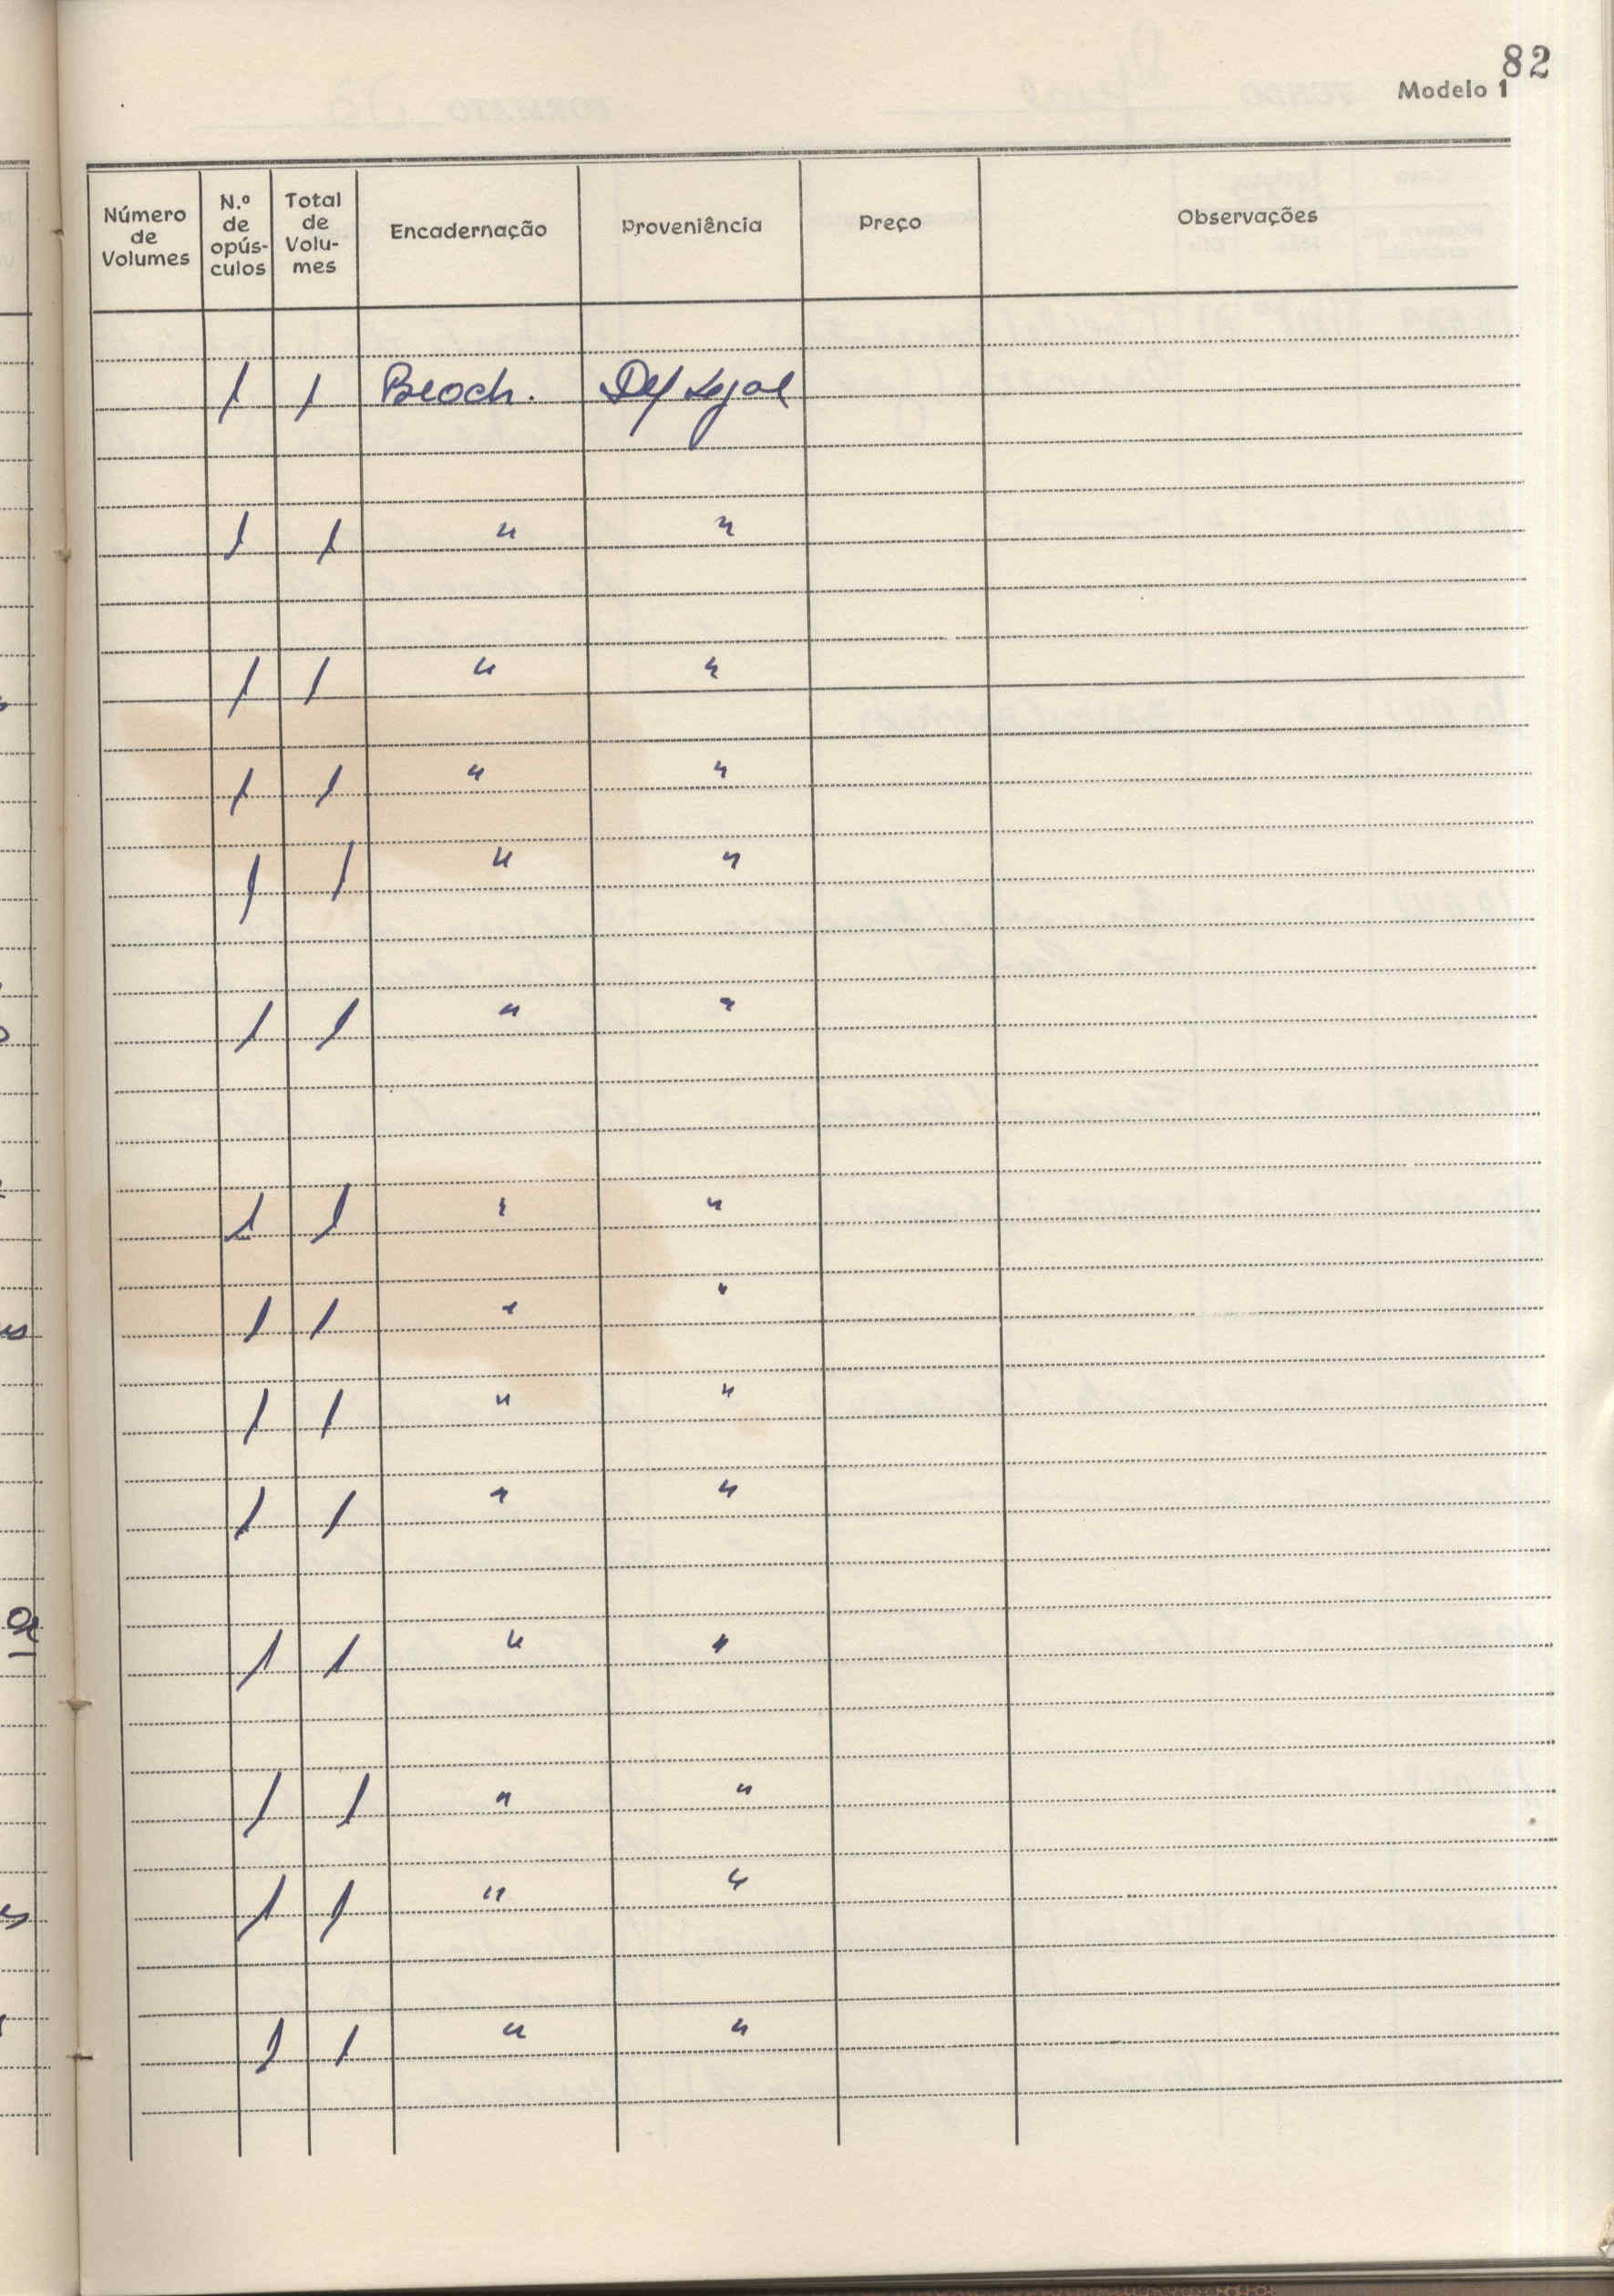 82
Modelo 1
Número de Volumes | N.º de opús-culos | Total de Volu-mes | Encadernação | Proveniência | Preço | Observações
1 1 Broch. Dep Legal
1 1 " "
1 1 " "
1 1 " "
1 1 " "
1 1 " "
1 1 " "
1 1 " "
1 1 " "
1 1 " "
1 1 " "
1 1 " "
1 1 " "
1 1 " "